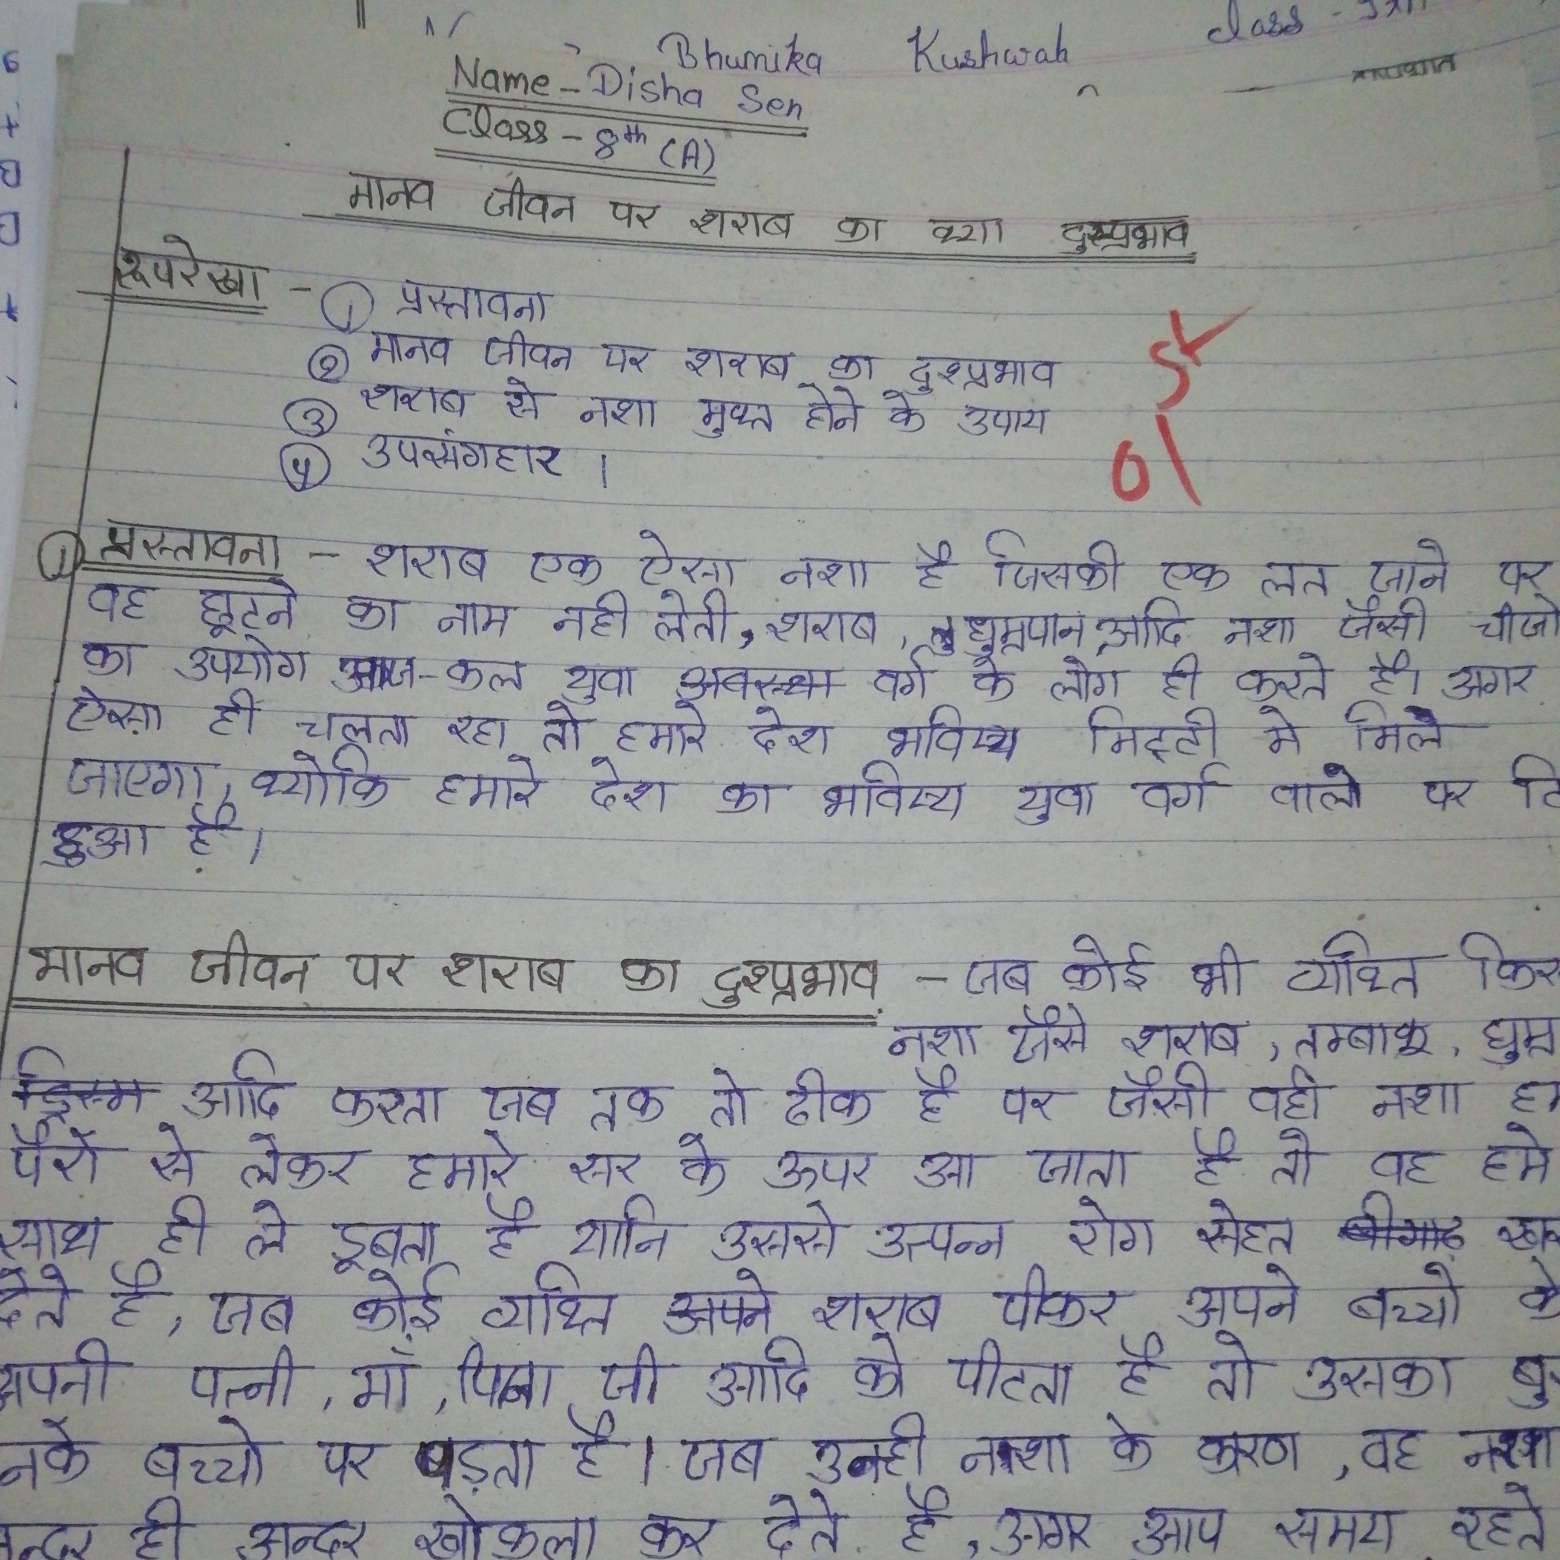 Bhumika Kushwah class -
Name - Disha Sen
Class - 8th (A)
मानव जीवन पर शराब का क्या दुस्प्रभाव
रूपरेखा - ① प्रस्तावना
② मानव जीवन पर शराब का दुश्प्रभाव
③ शराब से नशा मुक्त होने के उपाय
④ उपसंगहार ।
① प्रस्तावना - शराब एक ऐसा नशा है जिसकी एक लत जाने पर
वह छूटने का नाम नही लेती, शराब, धुम्रपान, आदि नशा जैसी चीजो
का उपयोग आज-कल युवा अवस्था वर्ग के लोग ही करते है। अगर
ऐसा ही चलता रहा तो हमारे देश भविष्य मिट्टी मे मिले
जाएगा, क्योकि हमारे देश का भविष्य युवा वर्ग वालो पर टि
हुआ है।
मानव जीवन पर शराब का दुश्प्रभाव - जब कोई भी व्यक्ति
नशा जैसे शराब, तम्बाकू, धुम्र
आदि करता जब तक तो ठीक है पर जैसी वही नशा
पैरो से लेकर हमारे सर के ऊपर आ जाता है तो वह हमे
साथ ही ले डूबता है यानि उससे उत्पन्न रोग सेहत
देते है, जब कोई व्यक्ति अपने शराब पीकर अपने बच्चो के
अपनी पत्नी, माँ, पिता जी आदि को पीटता है तो उसका बु
नके बच्चो पर पड़ता है। जब उनही नशा के करण, वह नशा
न्दर ही अन्दर खोकला कर देते है, अगर आप समय रहते